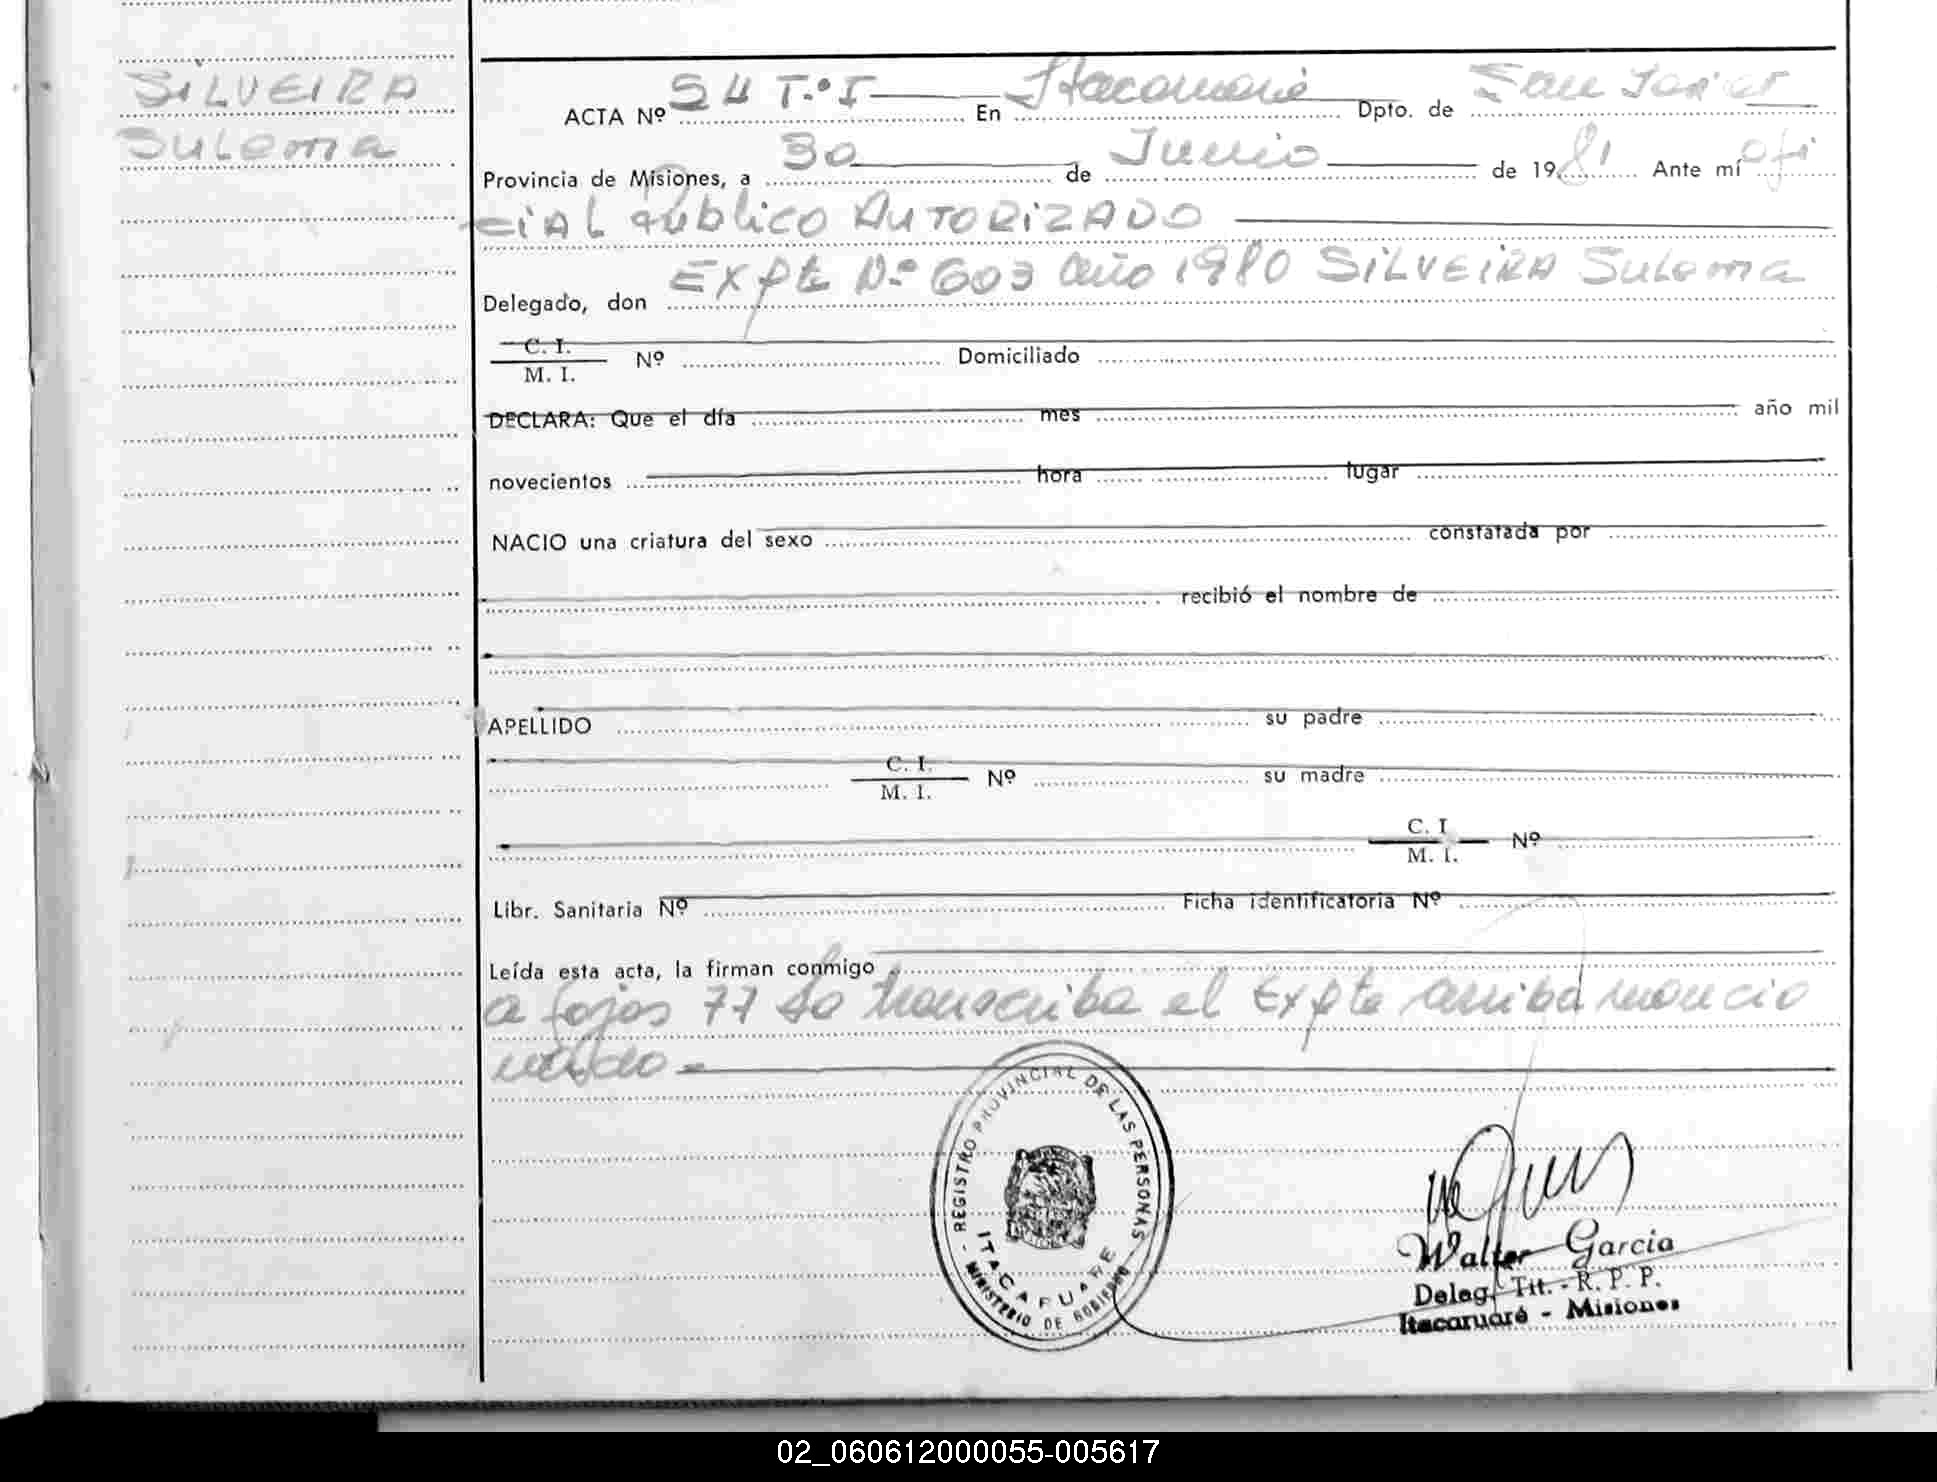 SILVEIRA
Suloma
ACTA Nº 54 T.º I En Itacaruaré Dpto. de San Javier
Provincia de Misiones, a 30 de Junio de 1981 Ante mí ofi
cial público AUTORIZADO
Delegado, don Expte Nº 603 año 1980 SILVEIRA Suloma
C. I. Nº Domiciliado
M. I.
DECLARA: Que el día mes año mil
novecientos hora lugar
NACIO una criatura del sexo constatada por
recibió el nombre de
APELLIDO su padre
C. I. Nº su madre
M. I.
C. I Nº
M. I.
Libr. Sanitaria Nº Ficha identificatoria Nº
Leída esta acta, la firman conmigo
a fojas 77 se transcriba el Expte arriba mencio
nado
- REGISTRO PROVINCIAL DE LAS PERSONAS -
ITACARUARE
MINISTERIO DE GOBIERNO
Walter Garcia
Deleg. Tit. - R. P. P.
Itacaruaré - Misiones
02_060612000055-005617